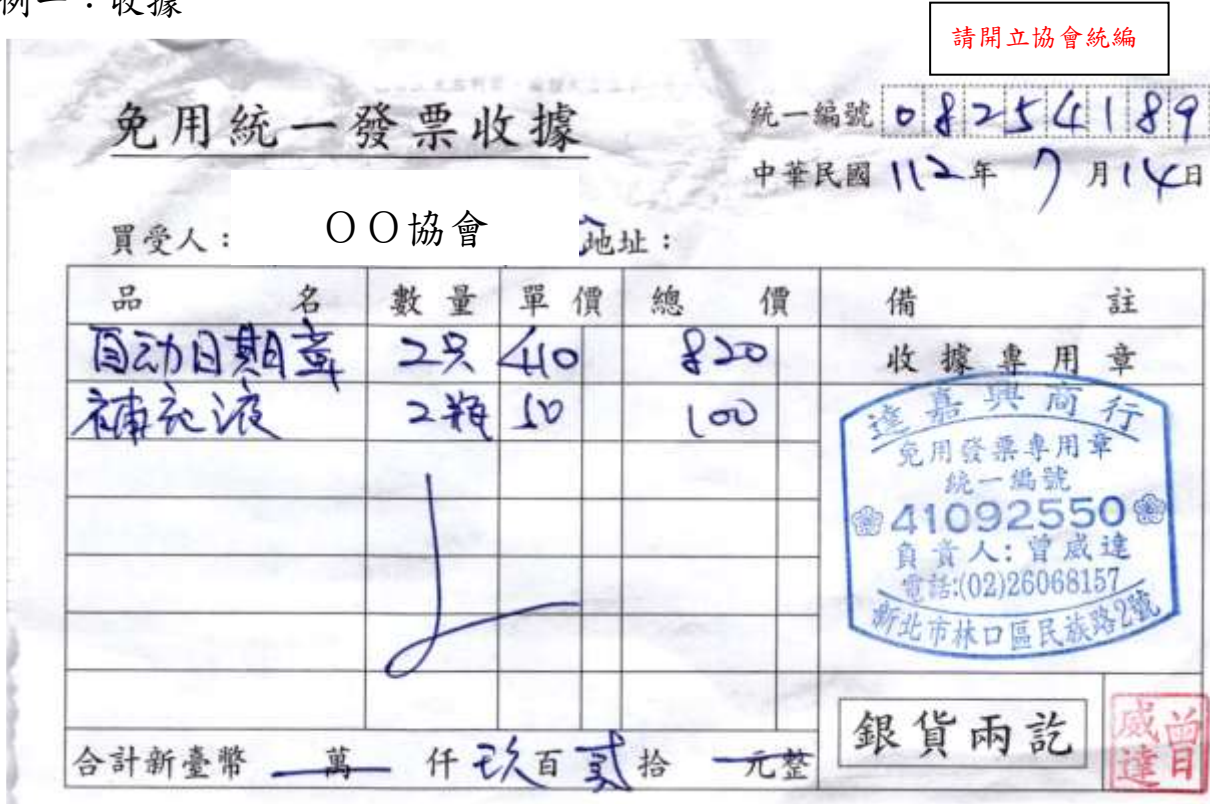 例一：收據
請開立協會統編
免用統一發票收據
統一編號 08254189
中華民國 112年 7月14日
買受人： ○○協會 地址：
品名 數量 單價 總價 備註
自动日期章 2只 410 820 收據專用章
補充液 2瓶 50 100
達嘉興商行
免用發票專用章
統一編號
41092550
負責人：曾威達
電話:(02)26068157
新北市林口區民族路2號
銀貨兩訖
曾威達
合計新臺幣 萬 仟 玖百 貳拾 元整